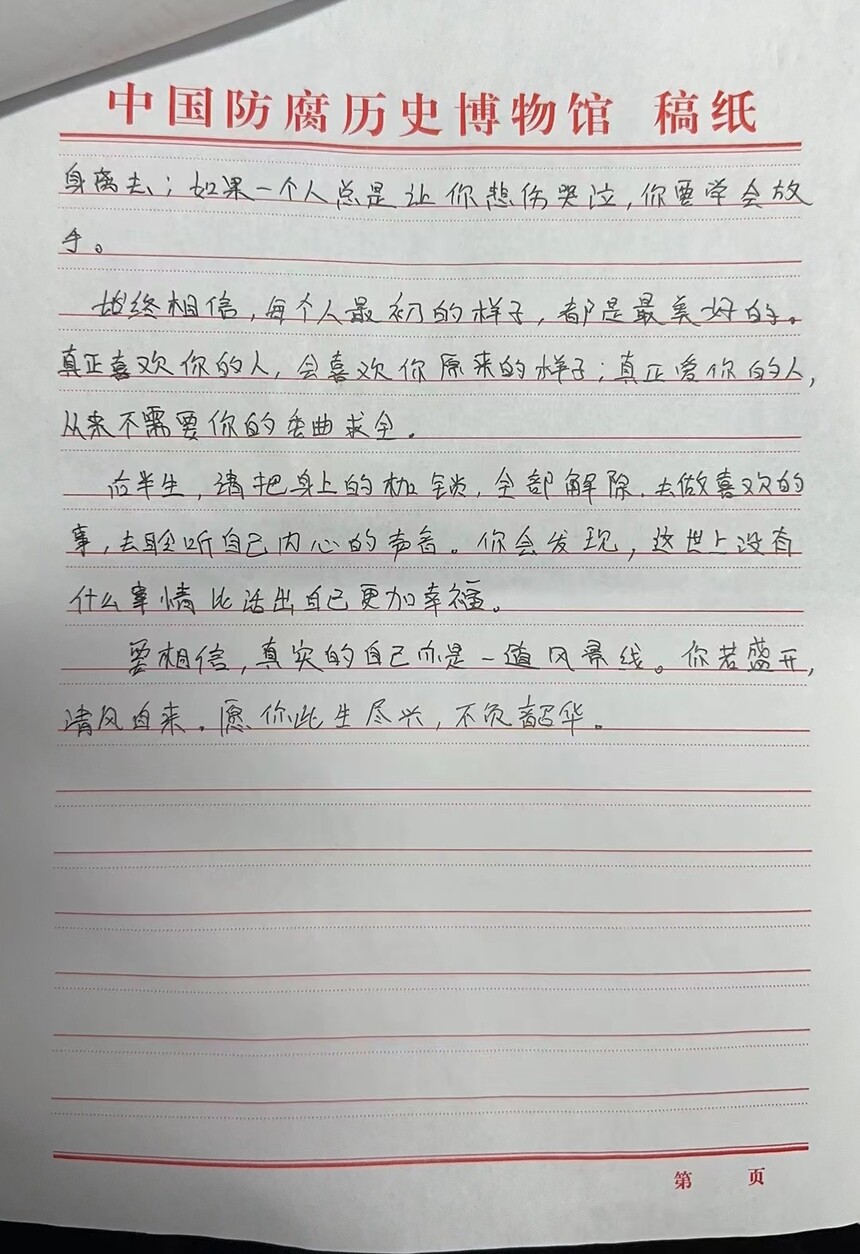 中国防腐历史博物馆 稿纸
身离去；如果一个人总是让你悲伤哭泣，你要学会放
手。
始终相信，每个人最初的样子，都是最美好的。
真正喜欢你的人，会喜欢你原来的样子；真正爱你的人，
从来不需要你的委曲求全。
后半生，请把身上的枷锁，全部解除，去做喜欢的
事，去聆听自己内心的声音。你会发现，这世上没有
什么事情比活出自己更加幸福。
要相信，真实的自己亦是一道风景线。你若盛开，
清风自来。愿你此生尽兴，不负韶华。
第 页